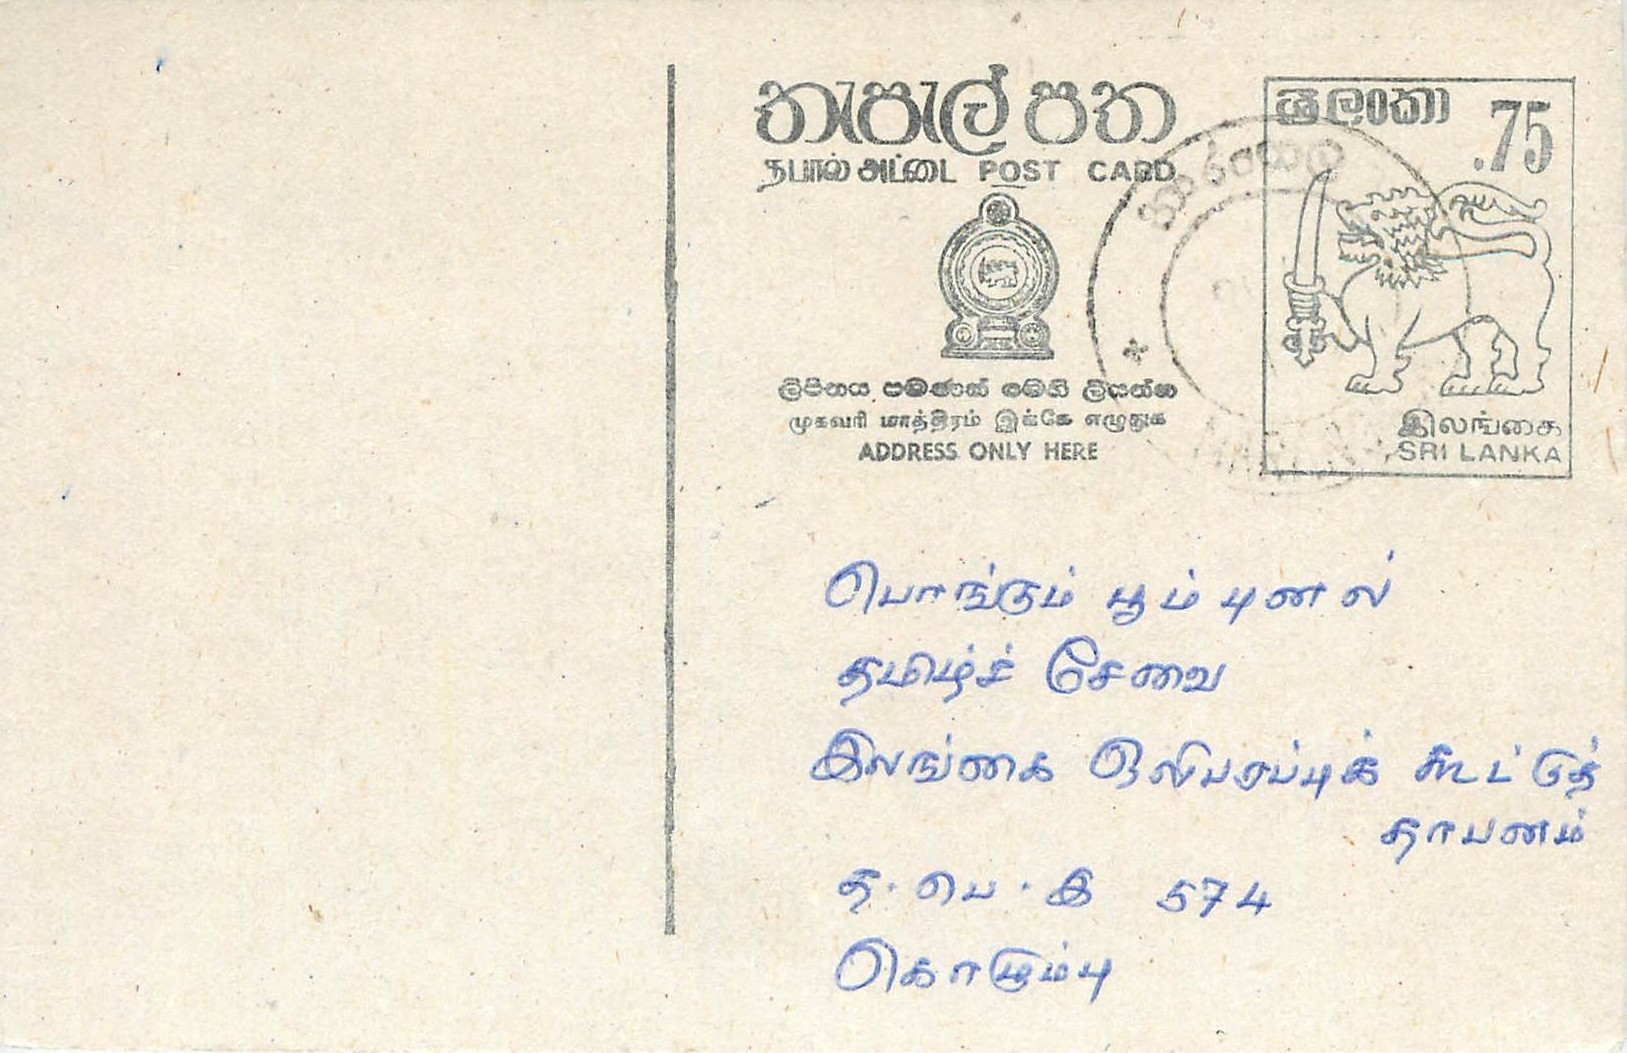 තැපැල් පත
தபால் அட்டை POST CARD
ලිපිනය පමණක් මෙහි ලියන්න
முகவரி மாத்திரம் இங்கே எழுதுக
ADDRESS ONLY HERE
ශ්‍රී ලංකා .75
இலங்கை
SRI LANKA
பொங்கும் பூம் புனல்
தமிழ்ச் சேவை
இலங்கை ஒலிபரப்புக் கூட்டுத்
தாபனம்
த. பெ. இ 574
கொழும்பு